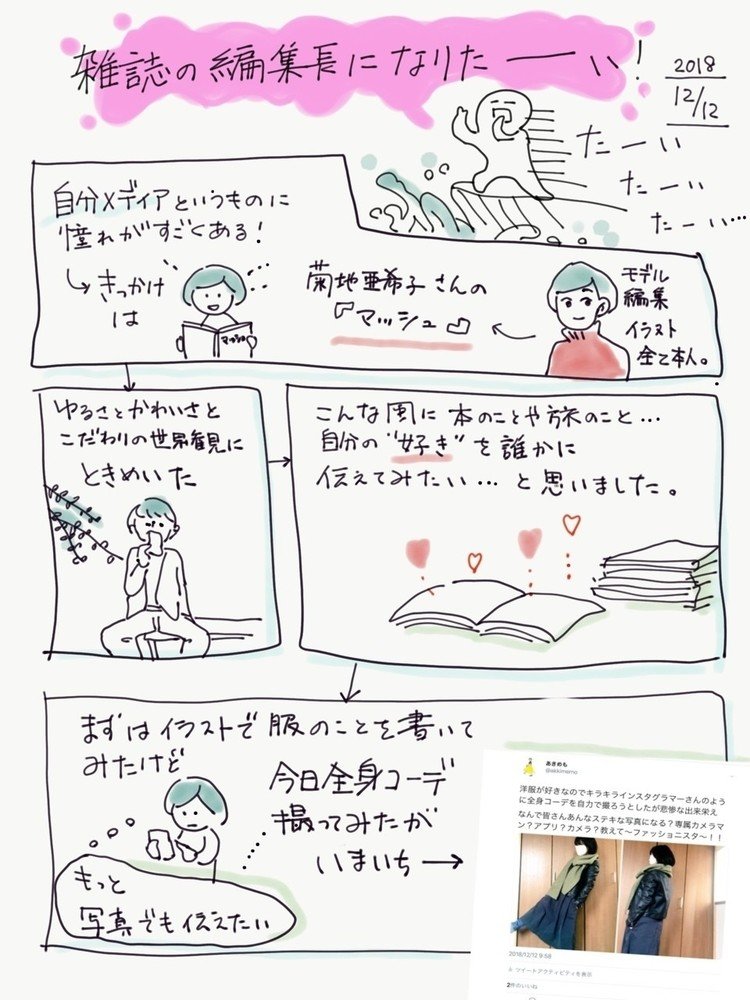 雑誌の編集長になりたーい!
2018
12/12
たーい
たーい
たーい…
自分メディアというものに
憧れがすごくある!
きっかけ
は
マッシュ
菊地亜希子さんの
『マッシュ』
モデル
編集
イラスト
全て本人。
ゆるさとかわいさと
こだわりの世界観に
ときめいた
こんな風に本のことや旅のこと…
自分の"好き"を誰かに
伝えてみたい…と思いました。
まずはイラストで服のことを書いて
みたけど
今日全身コーデ
撮ってみたが
いまいち→
もっと
写真でも伝えたい
あきめも
@akkimemo
洋服が好きなのでキラキラインスタグラマーさんのよう
に全身コーデを自力で撮ろうとしたが悲惨な出来栄え
なんで皆さんあんなステキな写真になる?専属カメラマ
ン?アプリ?カメラ?教えて〜ファッショニスタ〜!!
2018/12/12 9:58
ツイートアクティビティを表示
2件のいいね